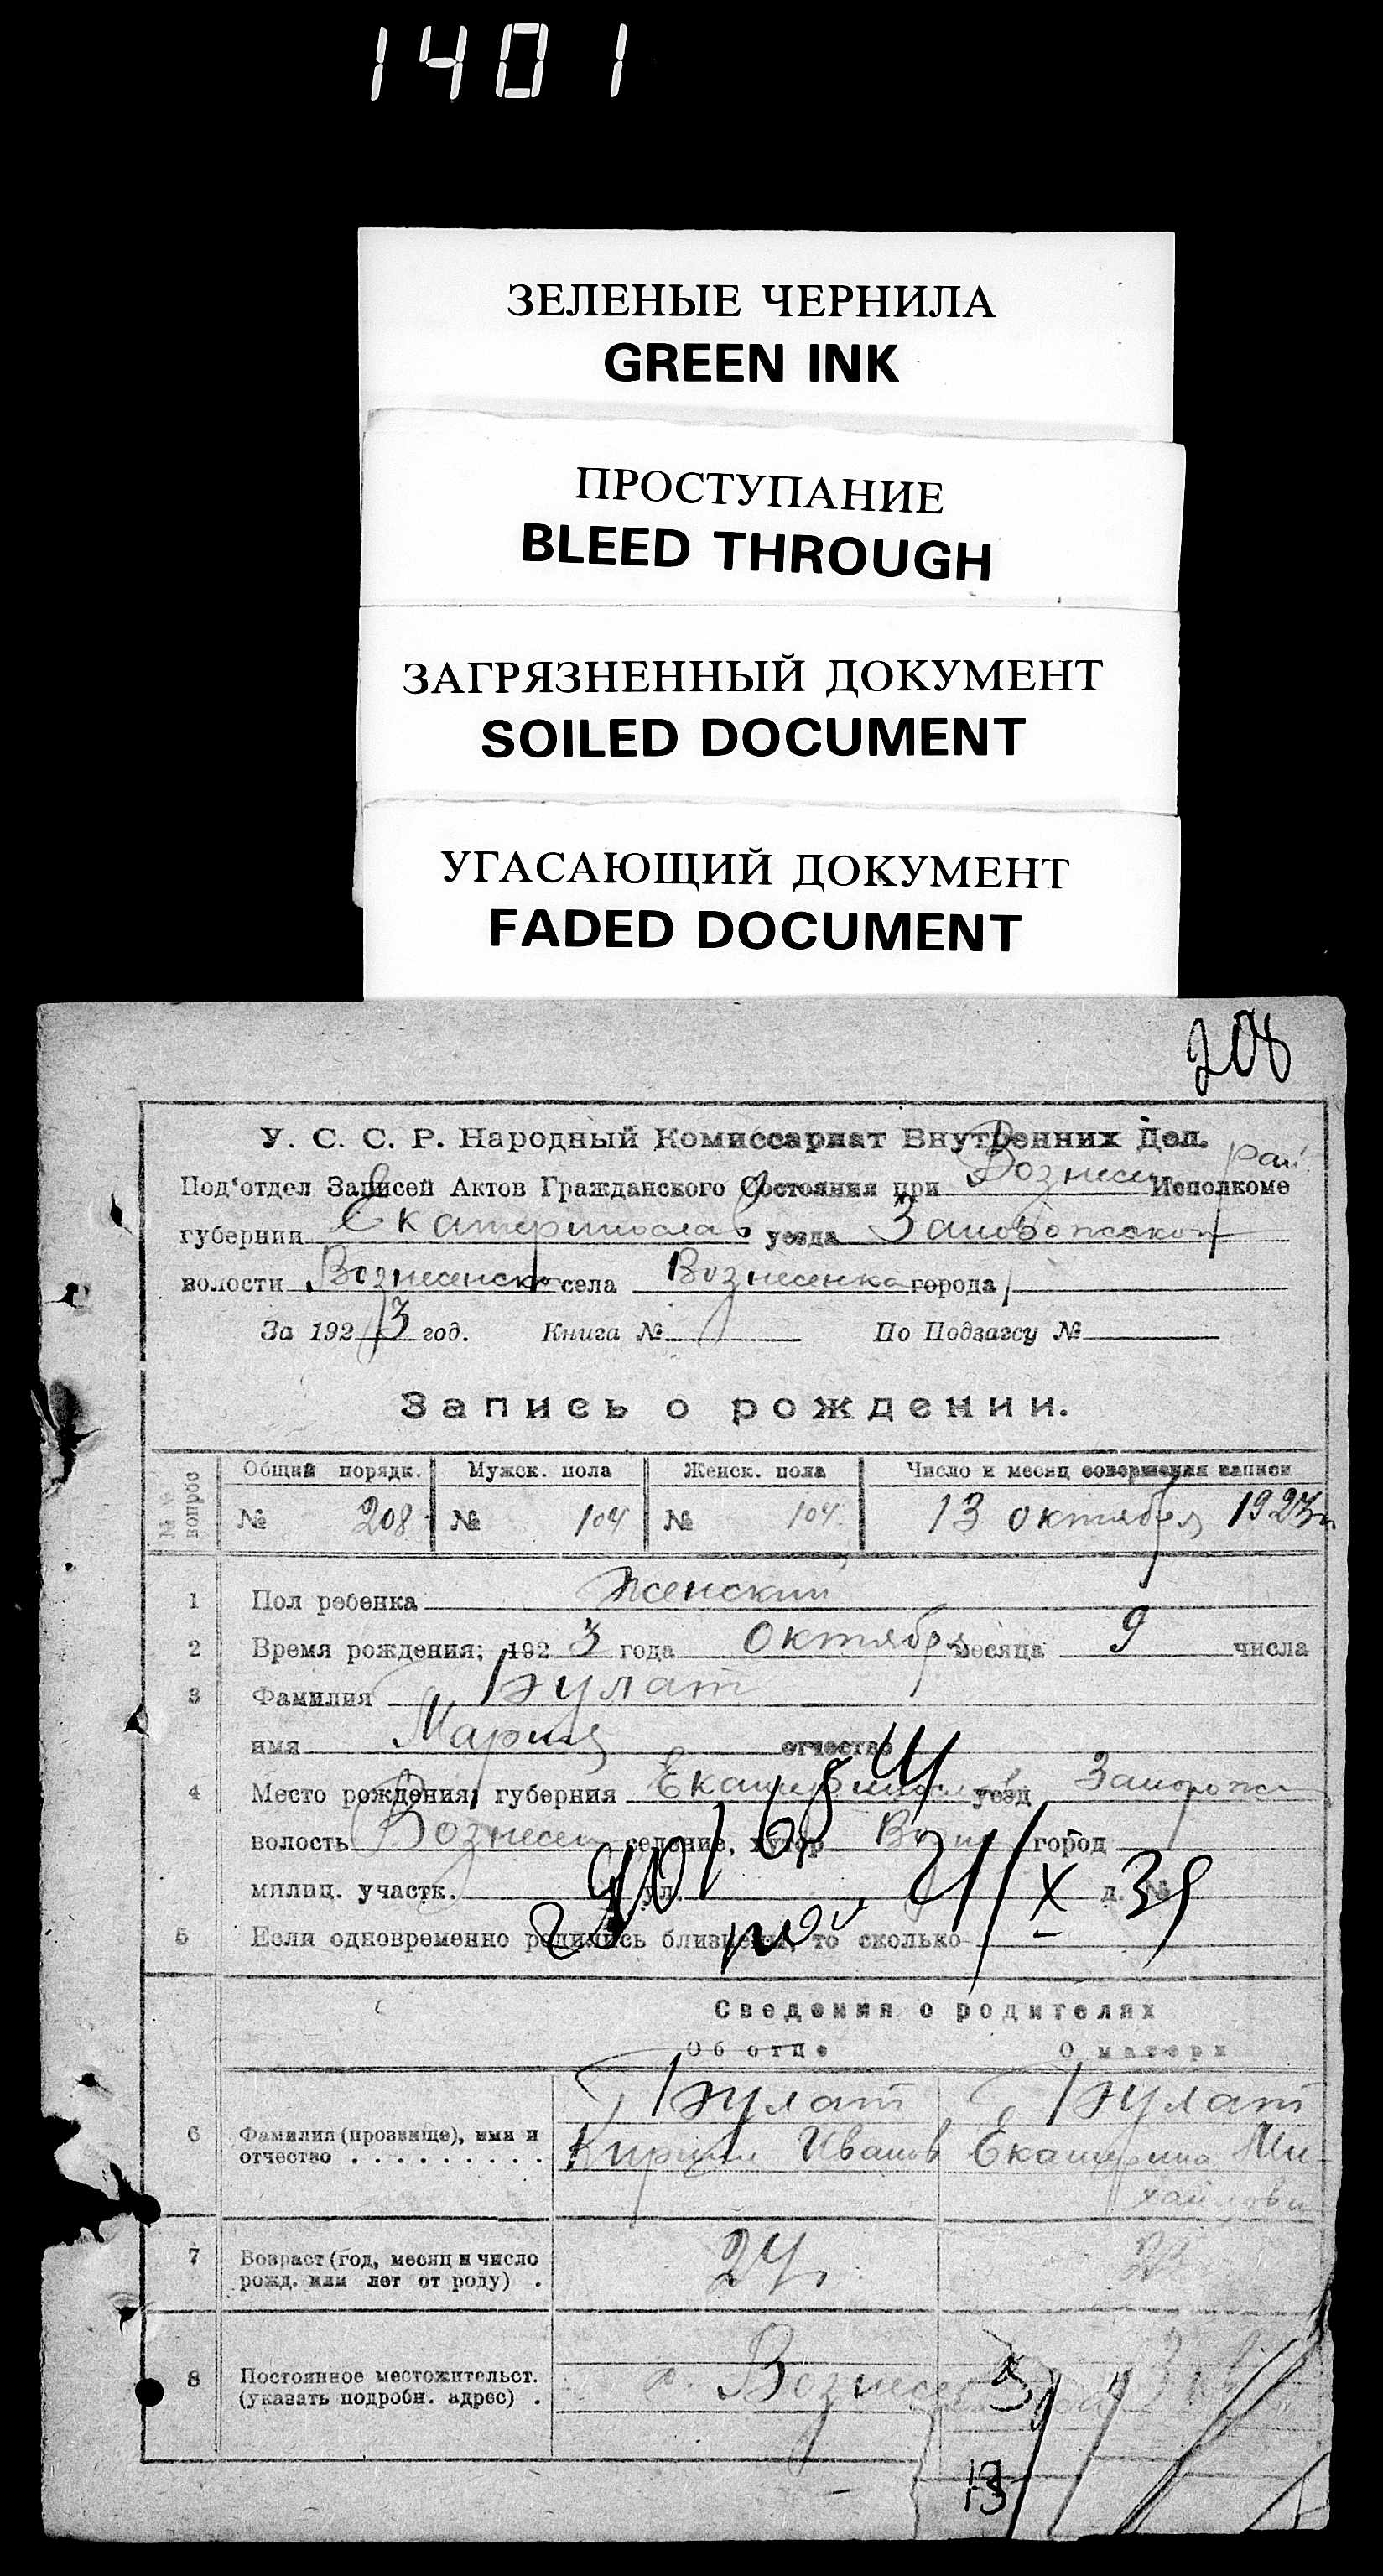 1401
ЗЕЛЕНЫЕ ЧЕРНИЛА
GREEN INK
ПРОСТУПАНИЕ
BLEED THROUGH
ЗАГРЯЗНЕННЫЙ ДОКУМЕНТ
SOILED DOCUMENT
УГАСАЮЩИЙ ДОКУМЕНТ
FADED DOCUMENT
208
У. С. С. Р. Народный Комиссариат Внутренних Дел.
Под'отдел Записей Актов Гражданского Состояния при Вознесен рай Исполкоме
губернии Екатеринослав уезда
волости Вознесенско села Вознесенка города
За 1923 год. Книга № По Подзагсу №
Запись о рождении.
№№ вопрос Общий порядк. Мужск. пола Женск. пола Число и месяц совершения записи
№ 208 № 104 № 104 13 октября 1923
1 Пол ребенка женский
2 Время рождения; 1923 года Октября месяца 9 числа
3 Фамилия Булат
имя Мария отчество
4 Место рождения; губерния уезд Запорож
волость Вознесен селение, хутор Возн город
милиц. участк. ул. д. №
21/X 39
5 Если одновременно родились близнецы, то сколько
Сведения о родителях
Об отце О матери
Булат Булат
6 Фамилия (прозвище), имя и отчество Кирилл Иванов Екатерина Ми-
хайлови
7 Возраст (год, месяц и число рожд. или лет от роду) 24
8 Постоянное местожительст. (указать подробн. адрес) с. Вознесен
13